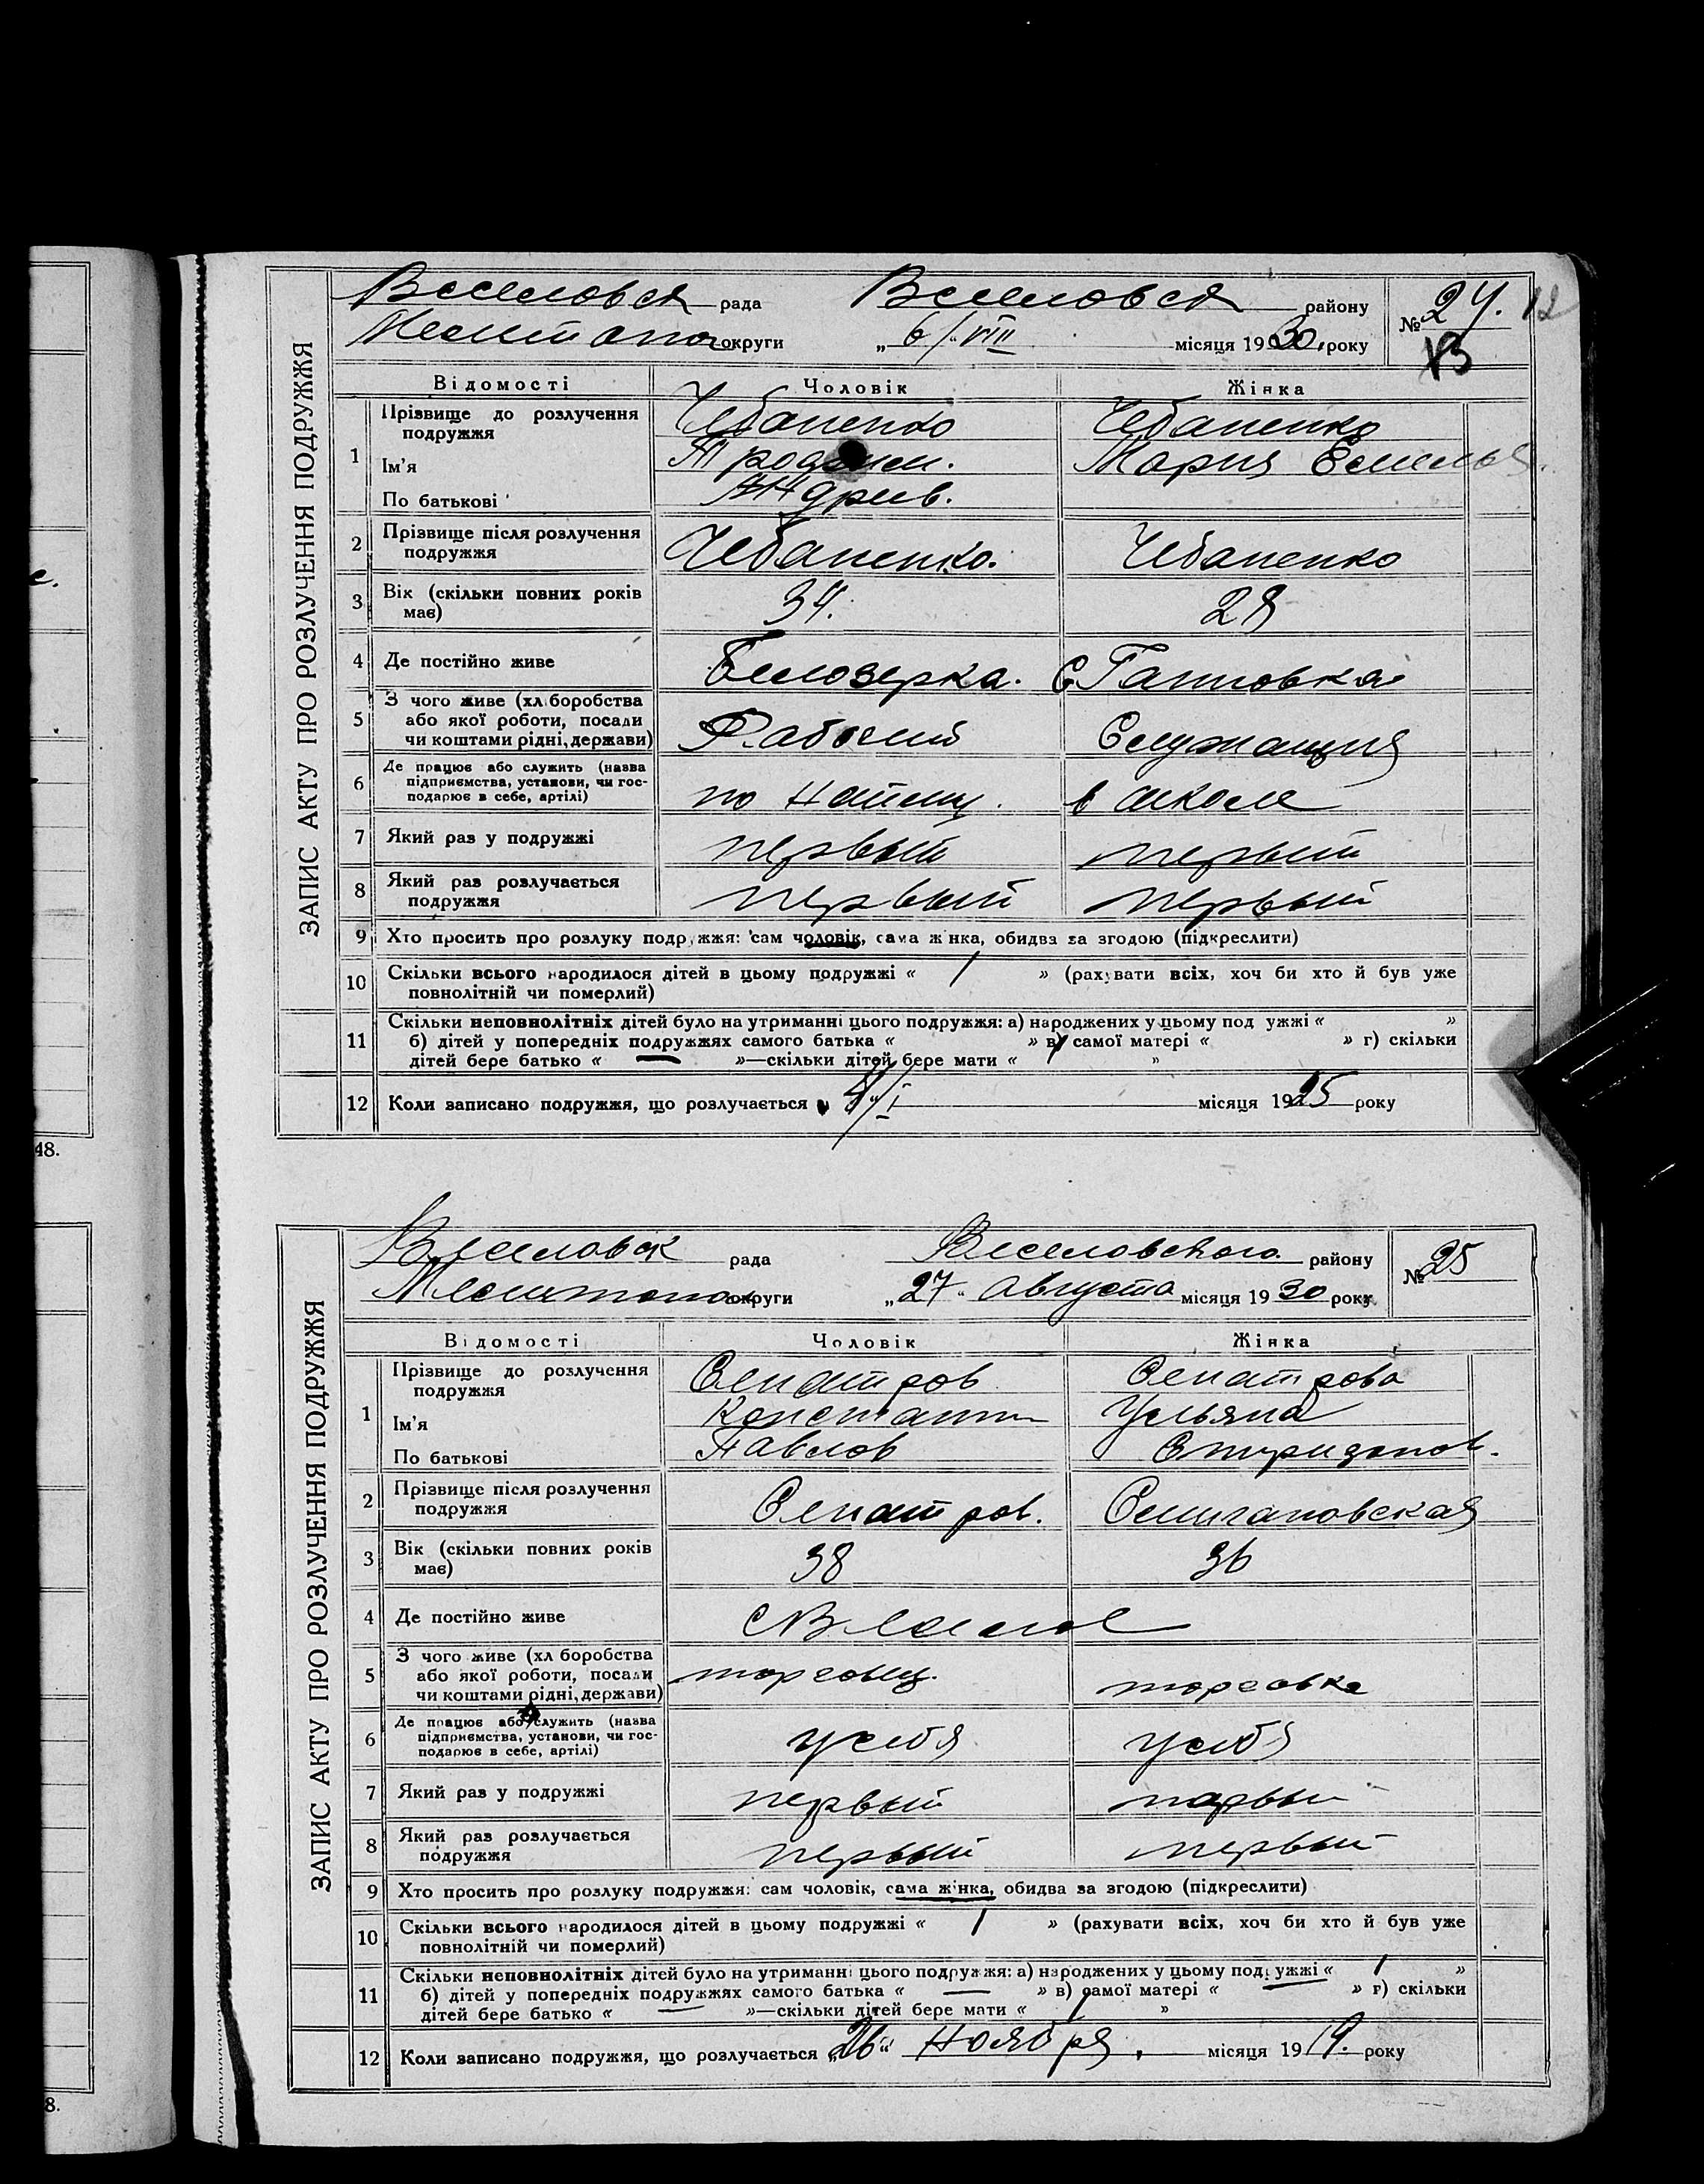 ЗАПИС АКТУ ПРО РОЗЛУЧЕННЯ ПОДРУЖЖЯ
рада району № 24. 12
округи „ 6/VIII місяця 1930, року 13
Відомості Чоловік Жінка
1 Прізвище до розлучення подружжя Чебаненко Чебаненко
Ім'я Мария Емелья.
По батькові Андрив.
2 Прізвище після розлучення подружжя Чебаненко. Чебаненко
3 Вік (скільки повних років має) 34. 28
4 Де постійно живе Белозерка. с Гапповка
5 З чого живе (хліборобства
або якої роботи, посади
чи коштами рідні, держави) Рабочий Служащия
6 Де працює або служить (назва
підприємства, установи, чи гос-
подарює в себе, артілі) по найму. в школе
7 Який раз у подружжі первый первый
8 Який раз розлучається
подружжя первый первый
9 Хто просить про розлуку подружжя: сам чоловік, сама жінка, обидва за згодою (підкреслити)
10 Скільки всього народилося дітей в цьому подружжі « 1 » (рахувати всіх, хоч би хто й був уже
повнолітній чи померлий)
11 Скільки неповнолітніх дітей було на утриманні цього подружжя: а) народжених у цьому подружжі « »
б) дітей у попередніх подружжях самого батька « » в) самої матері « » г) скільки
дітей бере батько « — »—скільки дітей бере мати « 1 »
12 Коли записано подружжя, що розлучається місяця 1925 року
48.
ЗАПИС АКТУ ПРО РОЗЛУЧЕННЯ ПОДРУЖЖЯ
рада Веселовского району № 25
округи „27“ Августа місяця 1930 року
Відомості Чоловік Жінка
1 Прізвище до розлучення
подружжя Сенатров Сенатрова
Ім'я Константин Ульяна
По батькові Павлов Спиридонов.
2 Прізвище після розлучення
подружжя Сенатров.
3 Вік (скільки повних років
має) 38 36
4 Де постійно живе
5 З чого живе (хліборобства
або якої роботи, посади
чи коштами рідні, держави) торговец. торговка
6 Де працює або служить (назва
підприємства, установи, чи гос-
подарює в себе, артілі) у себя у себя
7 Який раз у подружжі первый первый
8 Який раз розлучається
подружжя первый первый
9 Хто просить про розлуку подружжя: сам чоловік, сама жінка, обидва за згодою (підкреслити)
10 Скільки всього народилося дітей в цьому подружжі « 1 » (рахувати всіх, хоч би хто й був уже
повнолітній чи померлий)
11 Скільки неповнолітніх дітей було на утриманні цього подружжя: а) народжених у цьому подружжі « 1 »
б) дітей у попередніх подружжях самого батька « — » в) самої матері « — » г) скільки
дітей бере батько « — »—скільки дітей бере мати « 1 »
12 Коли записано подружжя, що розлучається „26“ Ноября, місяця 1919. року
8.